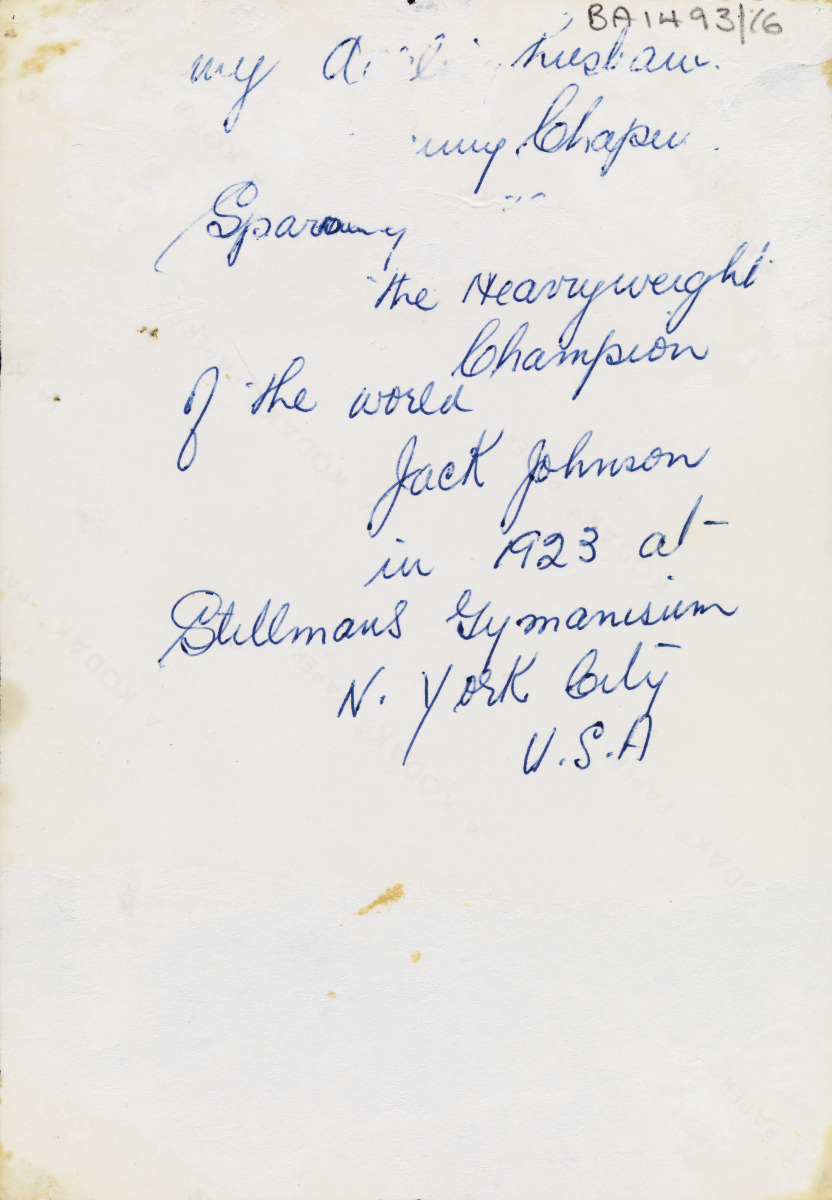 BA1493/76
my husban
Chape
Sparaing
the Heavryweight
Champion
of the world
Jack Johnson
in 1923 at
Stillmans Gymanisium
N. York City
U.S.A